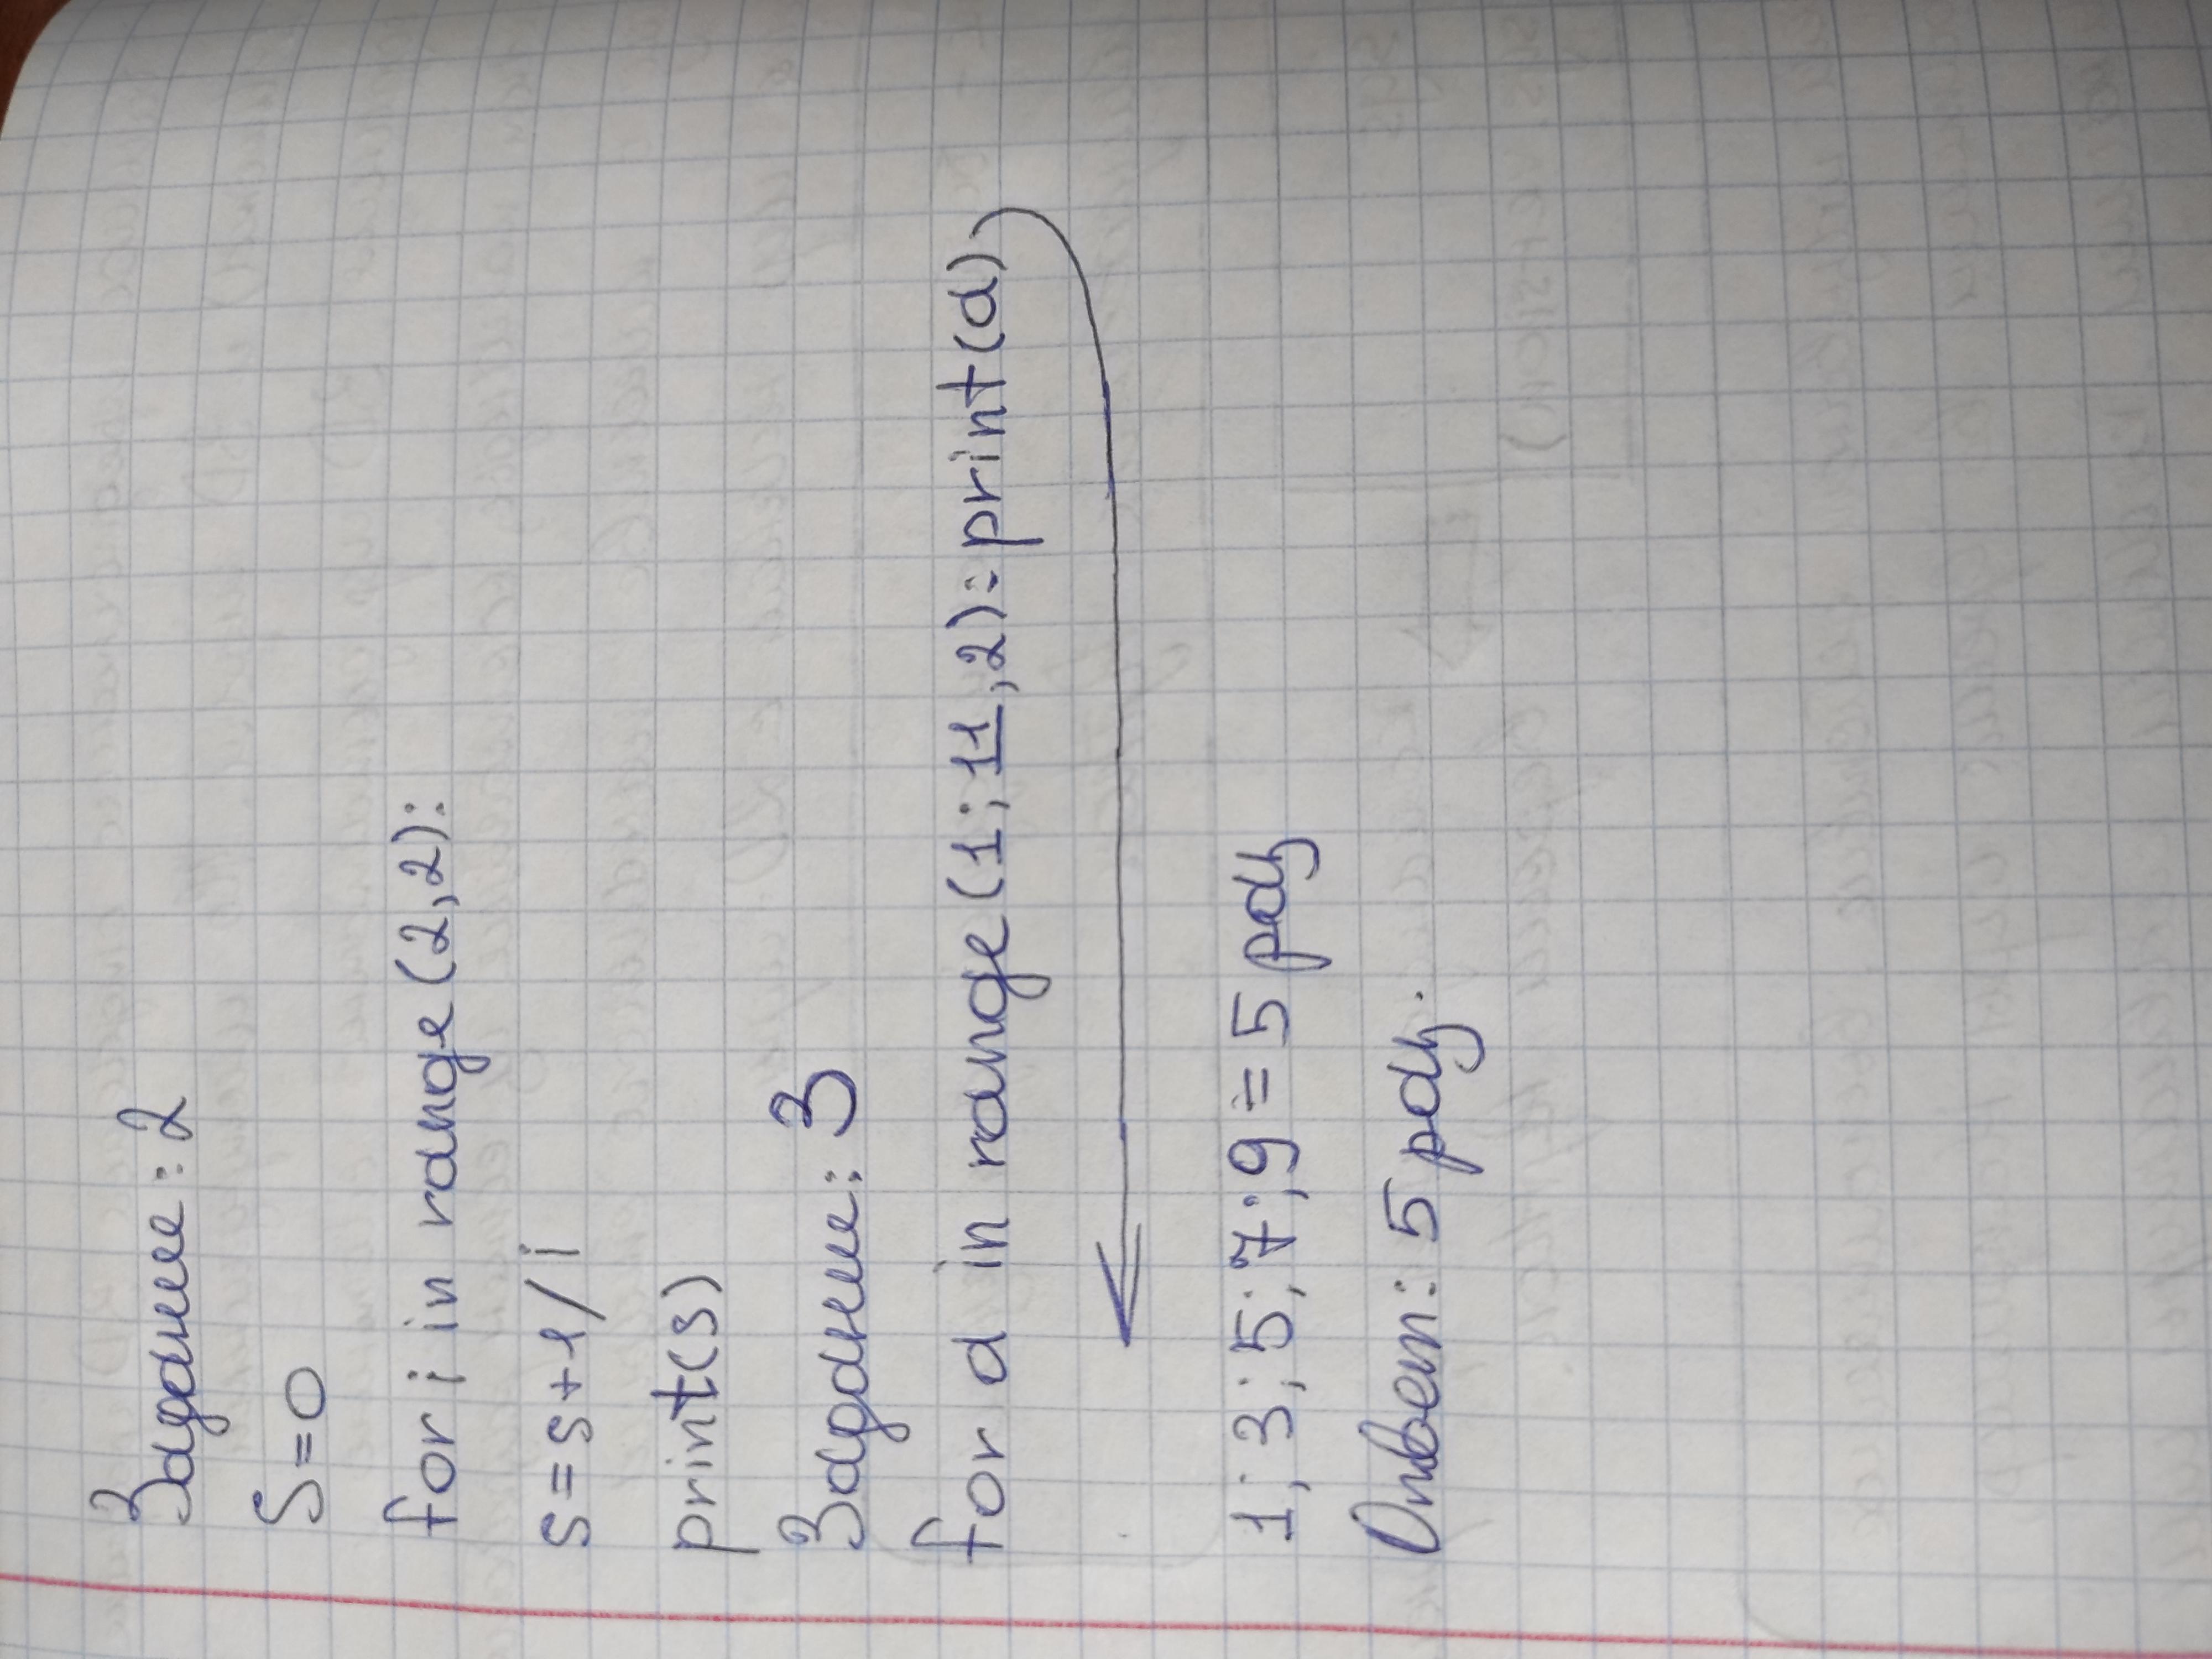 Задание: 2
S=0
for i in range(2,2):
s=s+1/i
print(s)
Задание: 3
for d in range(1;11,2):print(d)
1; 3; 5; 7; 9 = 5 раз
Ответ: 5 раз.